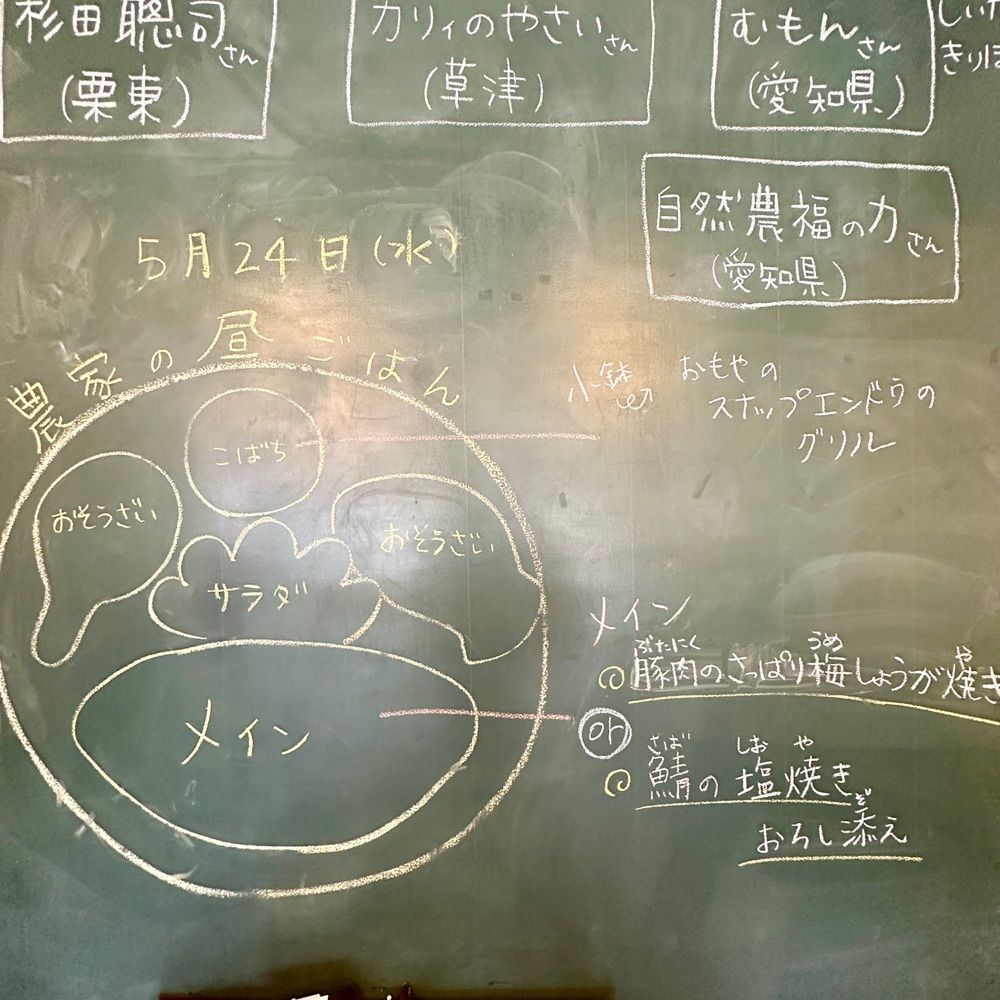 杉田聰司さん
(栗東)
カリィのやさいさん
(草津)
むもんさん
(愛知県)
自然農福の力さん
(愛知県)
5月24日(水)
農家の昼ごはん
こばち
おそうざい
おそうざい
サラダ
メイン
小鉢
おもやの
スナップエンドウの
グリル
メイン
ぶたにく うめ や
豚肉のさっぱり梅しょうが焼き
or
さば しお や
鯖の塩焼き
ぞ
おろし添え